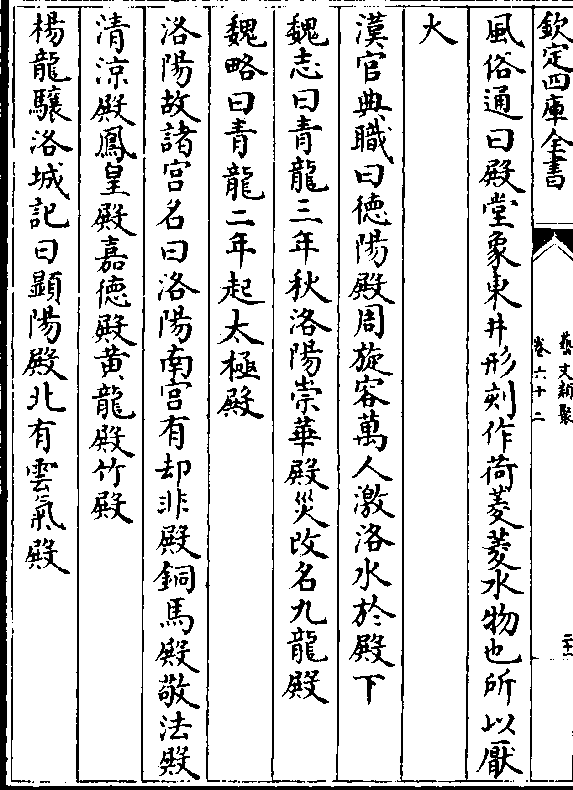 欽定四庫全書
藝文類聚
卷六十二
風俗通曰殿堂象東井形刻作荷菱菱水物也所以厭
火
漢官典職曰德陽殿周旋容萬人激洛水於殿下
魏志曰青龍三年秋洛陽崇華殿災改名九龍殿
魏略曰青龍二年起太極殿
洛陽故諸宮名曰洛陽南宮有却非殿銅馬殿敬法殿
清涼殿鳳皇殿嘉德殿黃龍殿竹殿
楊龍驤洛城記曰顯陽殿北有雲氣殿